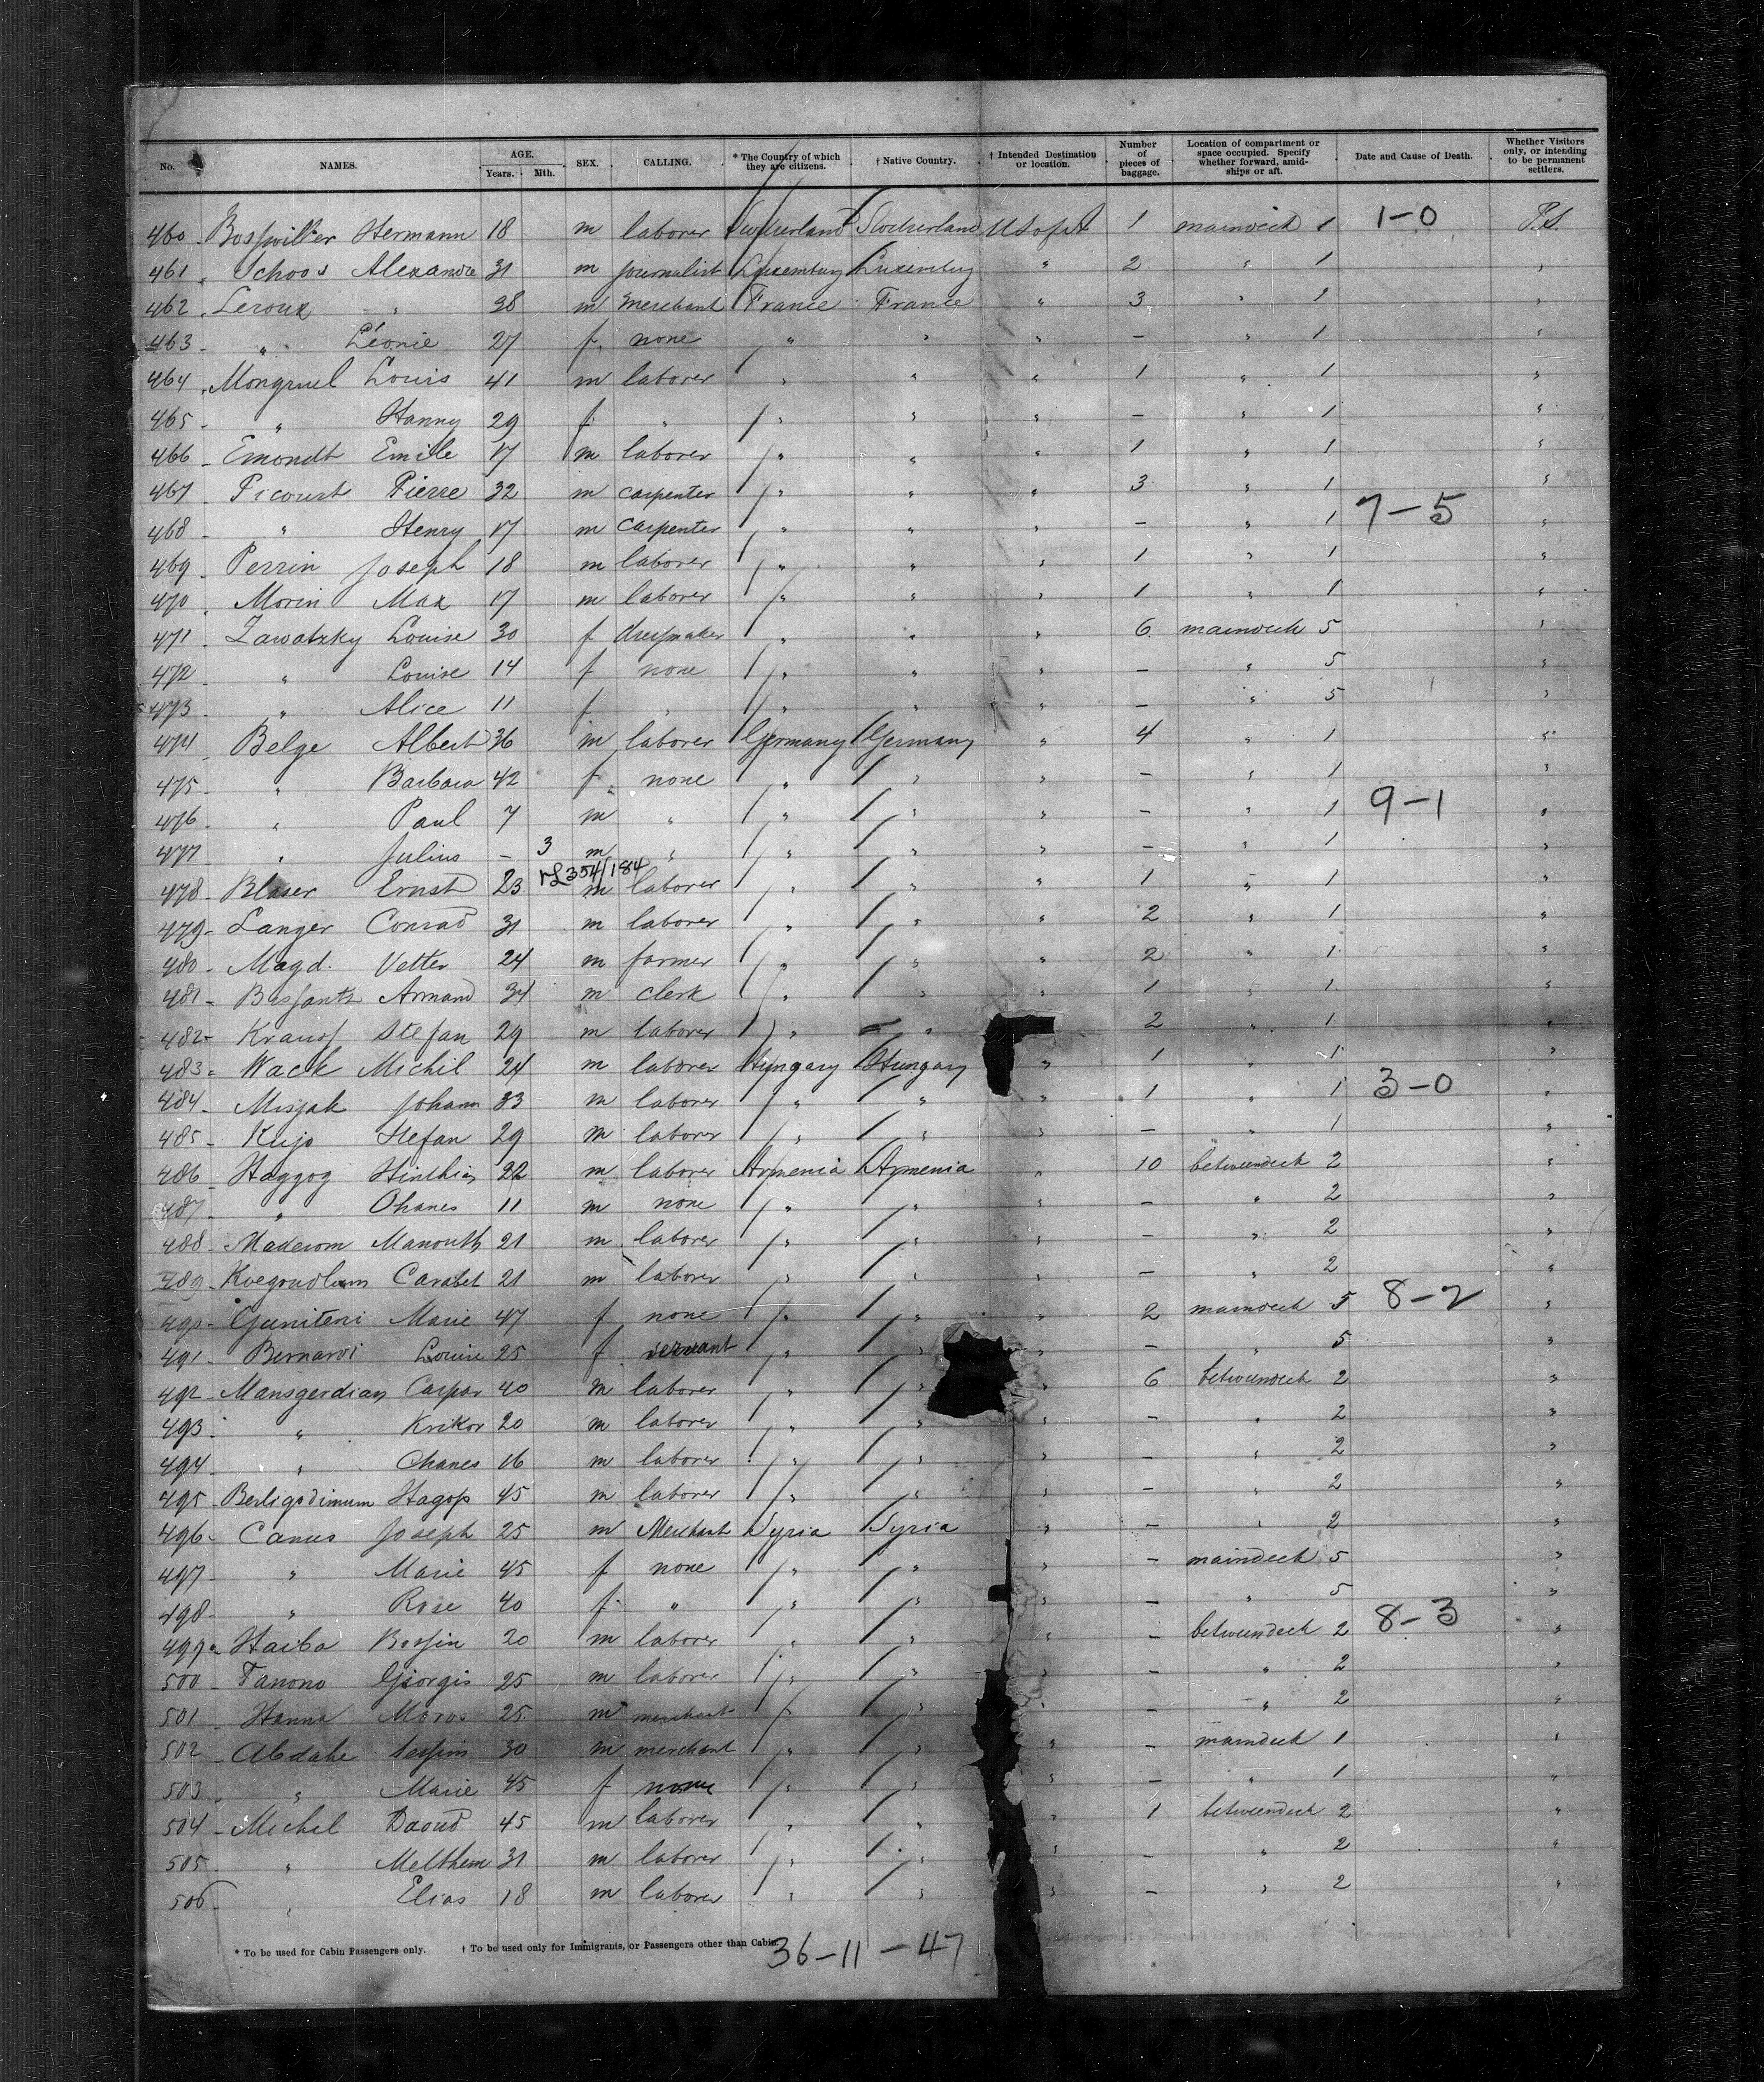 No. NAMES. AGE. Years. Mth. SEX. CALLING. * The Country of which they are citizens. † Native Country. † Intended Destination or location. Number of pieces of baggage. Location of compartment or space occupied. Specify whether forward, amidships or aft. Date and Cause of Death. Whether Visitors only, or intending to be permanent settlers.
460 Hermann 18 m laborer Switherland Switherland U S of A 1 maindeck 1 1-0 P.S.
461 Schoos Alexandre 31 m journalist Luxemburg Luxemburg " 2 " 1 "
462 Leroux " 38 m merchant France France " 3 " 1 "
463 " Léonie 27 f none " " " - " 1 "
464 Mongruel Louis 41 m laborer " " " 1 " 1 "
465 " Hanny 29 f " " " " - " 1 "
466 Emondt Emile 17 m laborer " " " 1 " 1 "
467 Picourt Pierre 32 m carpenter " " " 3 " 1 "
468 " Henry 17 m carpenter " " " - " 1 7-5 "
469 Perrin Joseph 18 m laborer " " " 1 " 1 "
470 Morin Max 17 m laborer " " " 1 " 1 "
471 Zawatzky Louise 30 f dressmaker " " " 6 maindeck 5 "
472 " Louise 14 f none " " " - " 5 "
473 " Alice 11 f " " " " - " 5 "
474 Belge Albert 36 m laborer Germany Germany " 4 " 1 "
475 " Barbara 42 f none " " " - " 1 "
476 " Paul 7 m " " " " - " 1 9-1 "
477 " Julius - 3 m " " " " - " 1 "
478 Blaser Ernst 23 354/184 m laborer " " " 1 " 1 "
479 Langer Conrad 31 m laborer " " " 2 " 1 "
480 Magd. Vetter 24 m farmer " " " 2 " 1 "
481 Armand 34 m clerk " " " 1 " 1 "
482 Stefan 29 m laborer " " 2 " 1 "
483 Wack Michil 24 m laborer Hungary Hungary " 1 " 1 "
484 Misjak Johann 33 m laborer " " " 1 " 1 3-0 "
485 Kujo Stefan 29 m laborer " " " - " 1 "
486 Haggog 22 m laborer Armenia Armenia " 10 betweendeck 2 "
487 " Ohanes 11 m none " " " - " 2 "
488 Maderom Manouth 21 m laborer " " " - " 2 "
489 Carabet 21 m laborer " " " - " 2 "
490 Guniteni Marie 47 f none " " " 2 maindeck 5 8-2 "
491 Bernardi Louise 25 f servant " " - " 5 "
492 Mansgerdian Caspar 40 m laborer " " " 6 betweendeck 2 "
493 " Krikor 20 m laborer " " " - " 2 "
494 " Ohanes 16 m laborer " " " - " 2 "
495 Hagop 45 m laborer " " " - " 2 "
496 Canus Joseph 25 m Merchant Syria Syria " - " 2 "
497 " Marie 45 f none " " " - maindeck 5 "
498 " Rose 40 f " " " " - " 5 "
499 Haiba Bessin 20 m laborer " " " - betweendeck 2 8-3 "
500 Tanono Giorgis 25 m laborer " " " - " 2 "
501 Hanna Moros 25 m merchant " " " - " 2 "
502 Abdahe Sessim 30 m merchant " " " - maindeck 1 "
503 " Marie 45 f none " " " - " 1 "
504 Michel Daoud 45 m laborer " " " 1 betweendeck 2 "
505 " Melthem 31 m laborer " " " - " 2 "
506 " Elias 18 m laborer " " " - " 2 "
* To be used for Cabin Passengers only. † To be used only for Immigrants, or Passengers other than Cabin.
36-11-47